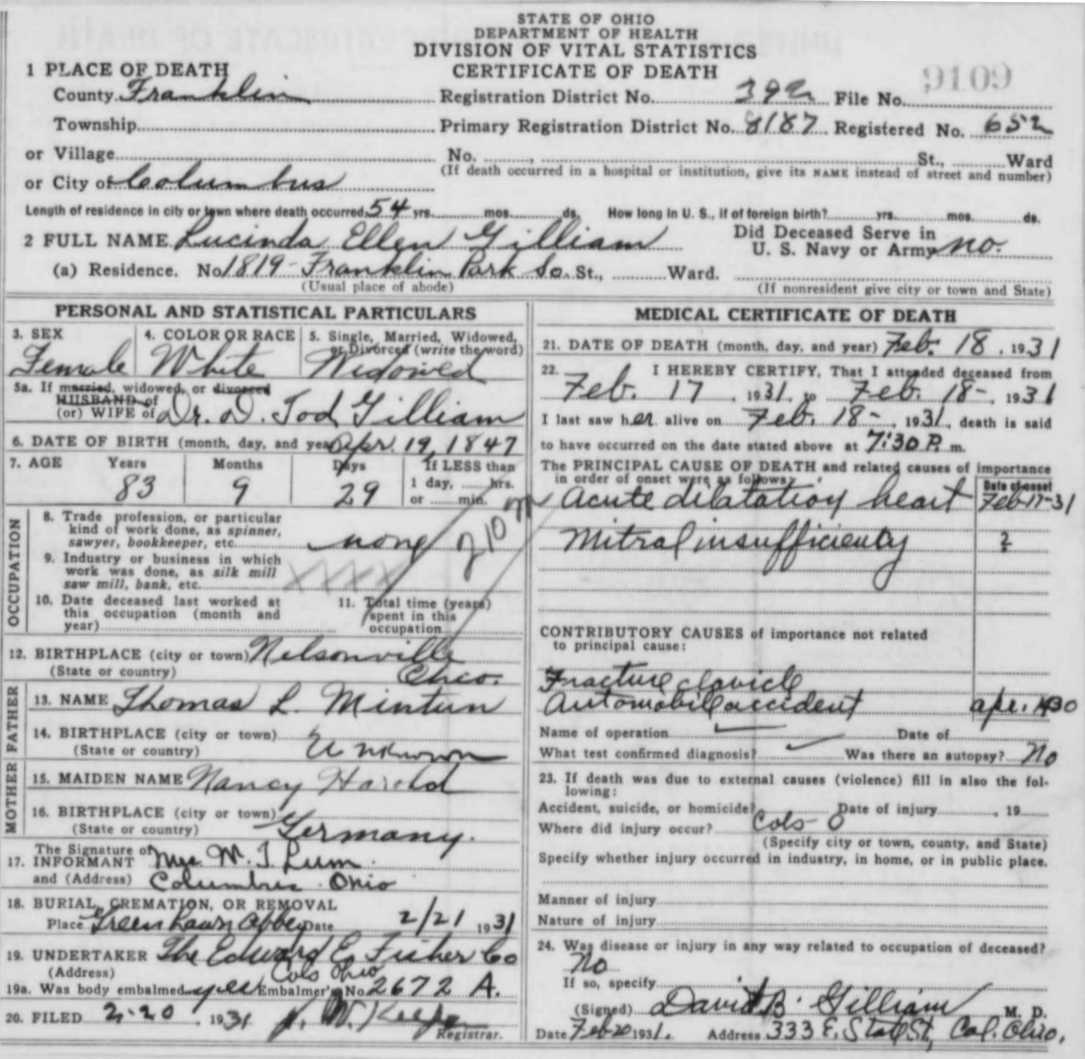 STATE OF OHIO
DEPARTMENT OF HEALTH
DIVISION OF VITAL STATISTICS
CERTIFICATE OF DEATH
9109
1 PLACE OF DEATH
County Franklin Registration District No. 392 File No.
Township Primary Registration District No. 8187 Registered No. 652
or Village No. , St., Ward
or City of Columbus (If death occurred in a hospital or institution, give its NAME instead of street and number)
Length of residence in city or town where death occurred 54 yrs. mos. ds. How long in U. S., if of foreign birth? yrs. mos. ds.
2 FULL NAME Lucinda Ellen Gilliam Did Deceased Serve in U. S. Navy or Army no.
(a) Residence. No 1819- Franklin Park So. St., Ward.
(Usual place of abode) (If nonresident give city or town and State)
PERSONAL AND STATISTICAL PARTICULARS
3. SEX 4. COLOR OR RACE 5. Single, Married, Widowed, or Divorced (write the word)
Female White Widowed
5a. If married, widowed, or divorced
HUSBAND of
(or) WIFE of Dr. D. Tod Gilliam
6. DATE OF BIRTH (month, day, and year) Apr. 19, 1847
7. AGE Years Months Days If LESS than
1 day, hrs.
or min.
83 9 29
OCCUPATION
8. Trade profession, or particular
kind of work done, as spinner,
sawyer, bookkeeper, etc. none
9. Industry or business in which
work was done, as silk mill
saw mill, bank, etc. XXX
10. Date deceased last worked at
this occupation (month and
year)
11. Total time (years)
spent in this
occupation
12. BIRTHPLACE (city or town) Nelsonville
(State or country) Ohio.
FATHER
13. NAME Thomas L. Mintun
14. BIRTHPLACE (city or town)
(State or country) Unknown
MOTHER
15. MAIDEN NAME Nancy Harold
16. BIRTHPLACE (city or town)
(State or country) Germany.
17. The Signature of
INFORMANT Mrs. W. T. Lum
and (Address) Columbus Ohio
18. BURIAL, CREMATION, OR REMOVAL
Place Green Lawn Abbey Date 2/21 1931
19. UNDERTAKER The Edward E Fisher Co
(Address) Cols Ohio
19a. Was body embalmed yes Embalmer's No. 2672 A.
20. FILED 2-20, 1931
Registrar.
MEDICAL CERTIFICATE OF DEATH
21. DATE OF DEATH (month, day, and year) Feb. 18, 1931
22. I HEREBY CERTIFY, That I attended deceased from
Feb. 17, 1931, to Feb. 18-, 1931
I last saw her alive on Feb. 18-, 1931, death is said
to have occurred on the date stated above at 7:30 P. m.
The PRINCIPAL CAUSE OF DEATH and related causes of importance
in order of onset were as follows: Date of onset
Acute dilatation heart Feb-17-31
Mitral insufficiency ?
CONTRIBUTORY CAUSES of importance not related
to principal cause:
Fracture clavicle
Automobile accident Apr. 1930
Name of operation Date of
What test confirmed diagnosis? Was there an autopsy? No
23. If death was due to external causes (violence) fill in also the fol-
lowing:
Accident, suicide, or homicide? Date of injury , 19
Where did injury occur? Cols- O
(Specify city or town, county, and State)
Specify whether injury occurred in industry, in home, or in public place.
Manner of injury
Nature of injury
24. Was disease or injury in any way related to occupation of deceased?
No
If so, specify
(Signed) David B. Gilliam M. D.
Date Feb 20 1931. Address 333 E. State St, Col. Ohio.